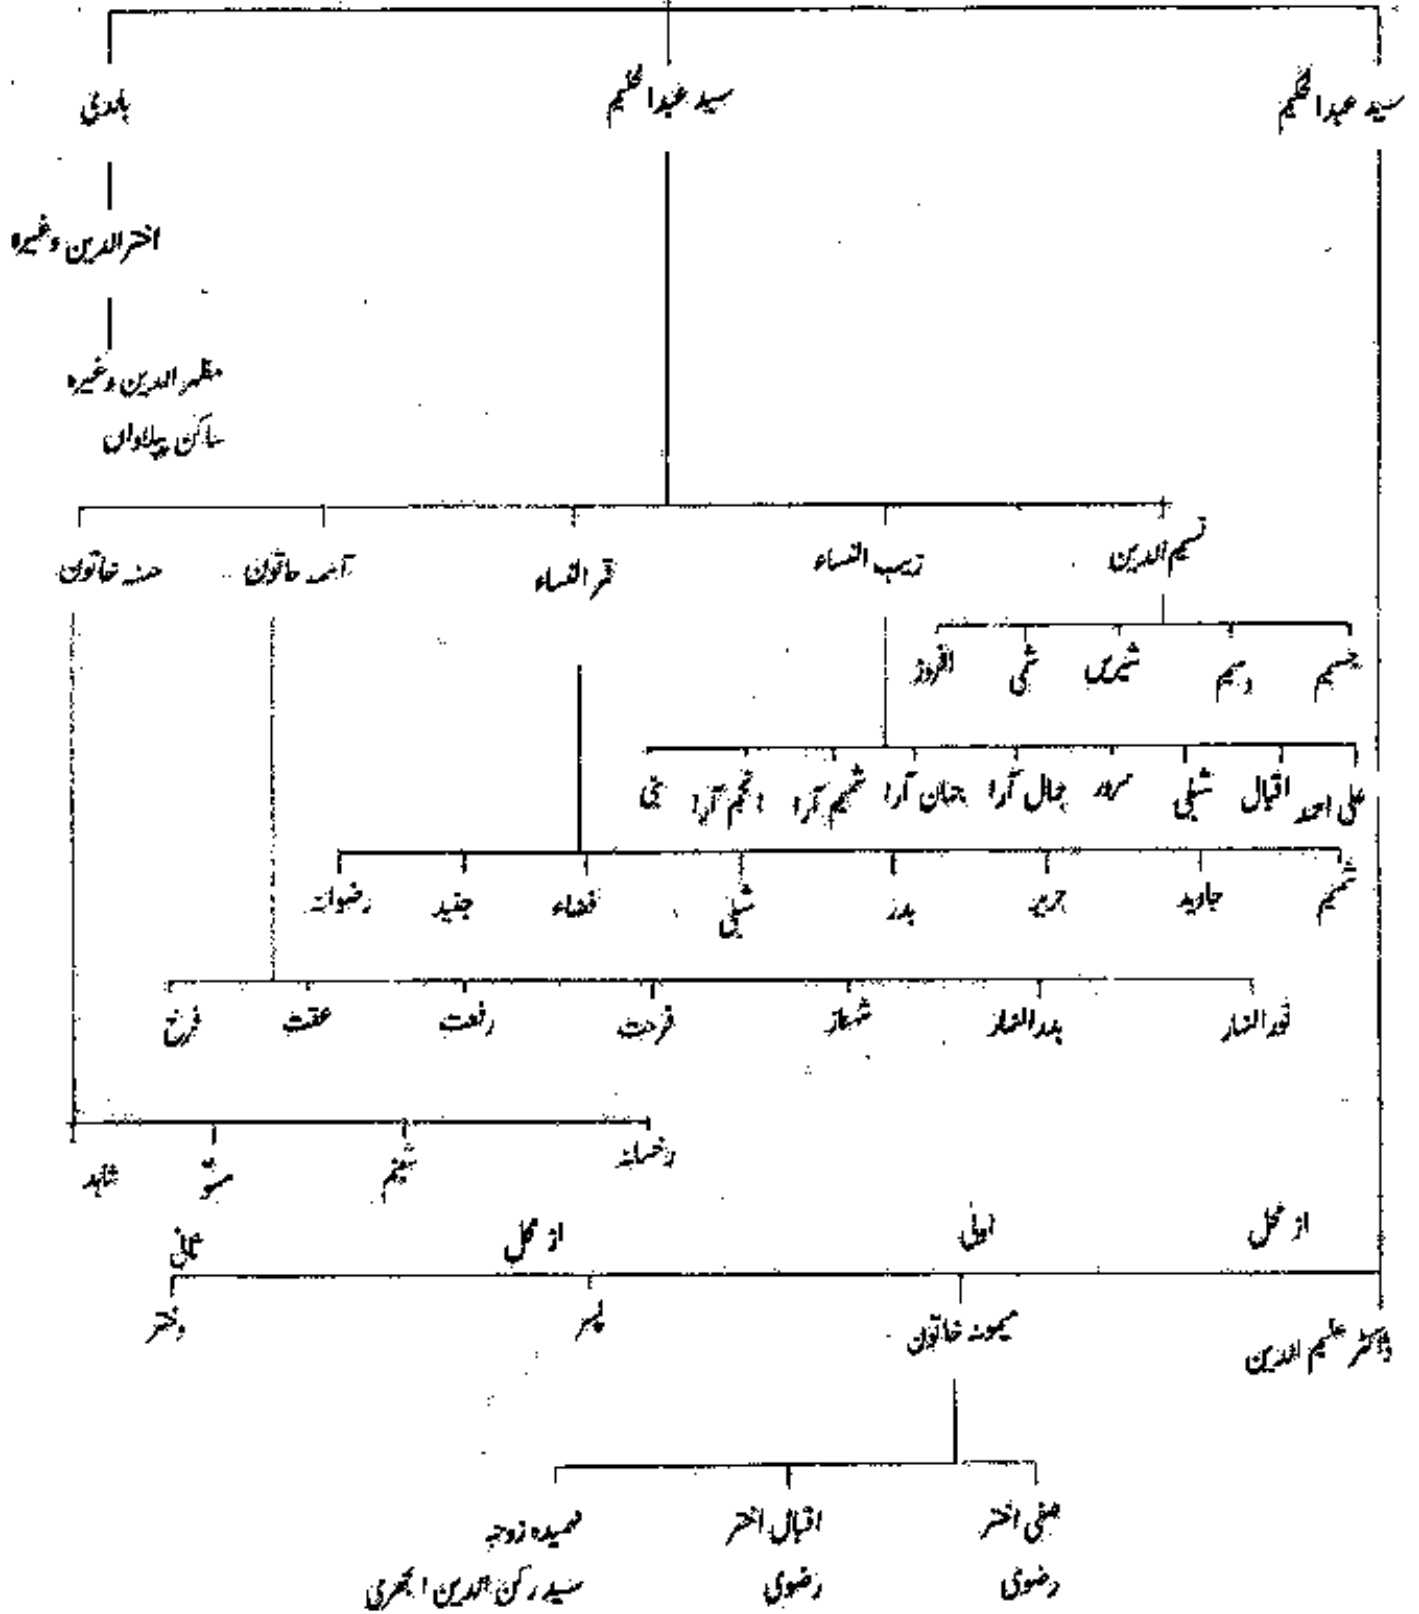 سید عبدالحکیم سید عبدالحلیم باندی
اختر الدین وغیرہ
مظہر الدین وغیرہ
ساکن پیلاواں
نسیم الدین زیب النساء قمر النساء آمنہ خاتون حسنہ خاتون
وسیم شیریں شمی افروز
علی احمد اقبال شبلی جمال آرا جہان آرا شمیم آرا انجم آرا
شمیم جاوید جریر بدر شبلی فضاء جنید رضوانہ
نور النہار بدر النہار شہناز فرحت رفعت عفت فرخ
رخسانہ شبنم شاہد
از محل اولیٰ از محل ثانی
ڈاکٹر علیم الدین میمونہ خاتون پسر دختر
صفی اختر اقبال اختر فہمیدہ زوجہ
رضوی رضوی سید رکن الدین